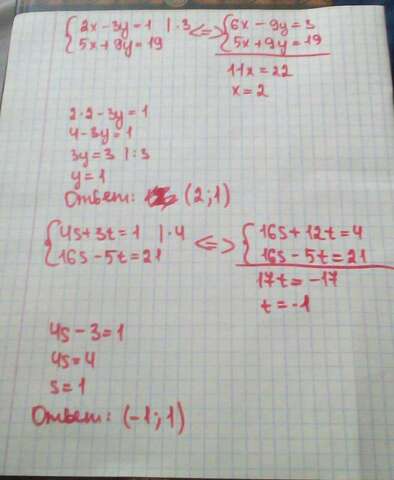 {2x - 3y = 1 | · 3 <=> {6x - 9y = 3
{5x + 9y = 19 {5x + 9y = 19
11x = 22
x = 2
2 · 2 - 3y = 1
4 - 3y = 1
3y = 3 | : 3
y = 1
Ответ: (2; 1)
{4s + 3t = 1 | · 4 <=> {16s + 12t = 4
{16s - 5t = 21 {16s - 5t = 21
17t = -17
t = -1
4s - 3 = 1
4s = 4
s = 1
Ответ: (-1; 1)